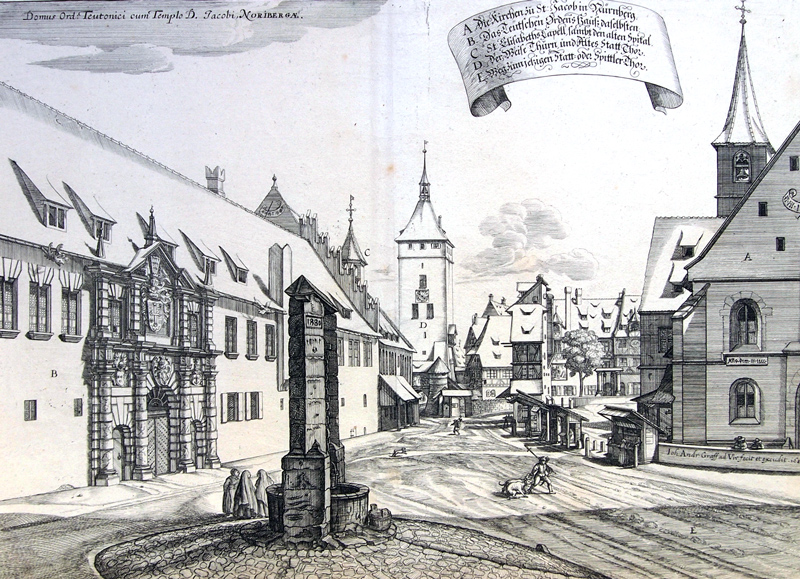 Domus Ord: Teutonici cum Templo D. Jacobi, NORIBERGÆ.
A. Die Kirchen zu St. Jacob in Nürnberg.
B. Das Teütschen Ordens Hauß daselbsten.
C. St. Elisabeths Capell, sambt den alten Spital.
D. Der Weise Thurn, und Altes Statt Thor.
E. Weg zum ietzigen Statt oder Spittler Thor.
C
A
D
B
E
Joh. Andr. Graff ad Viv. fecit et excudit